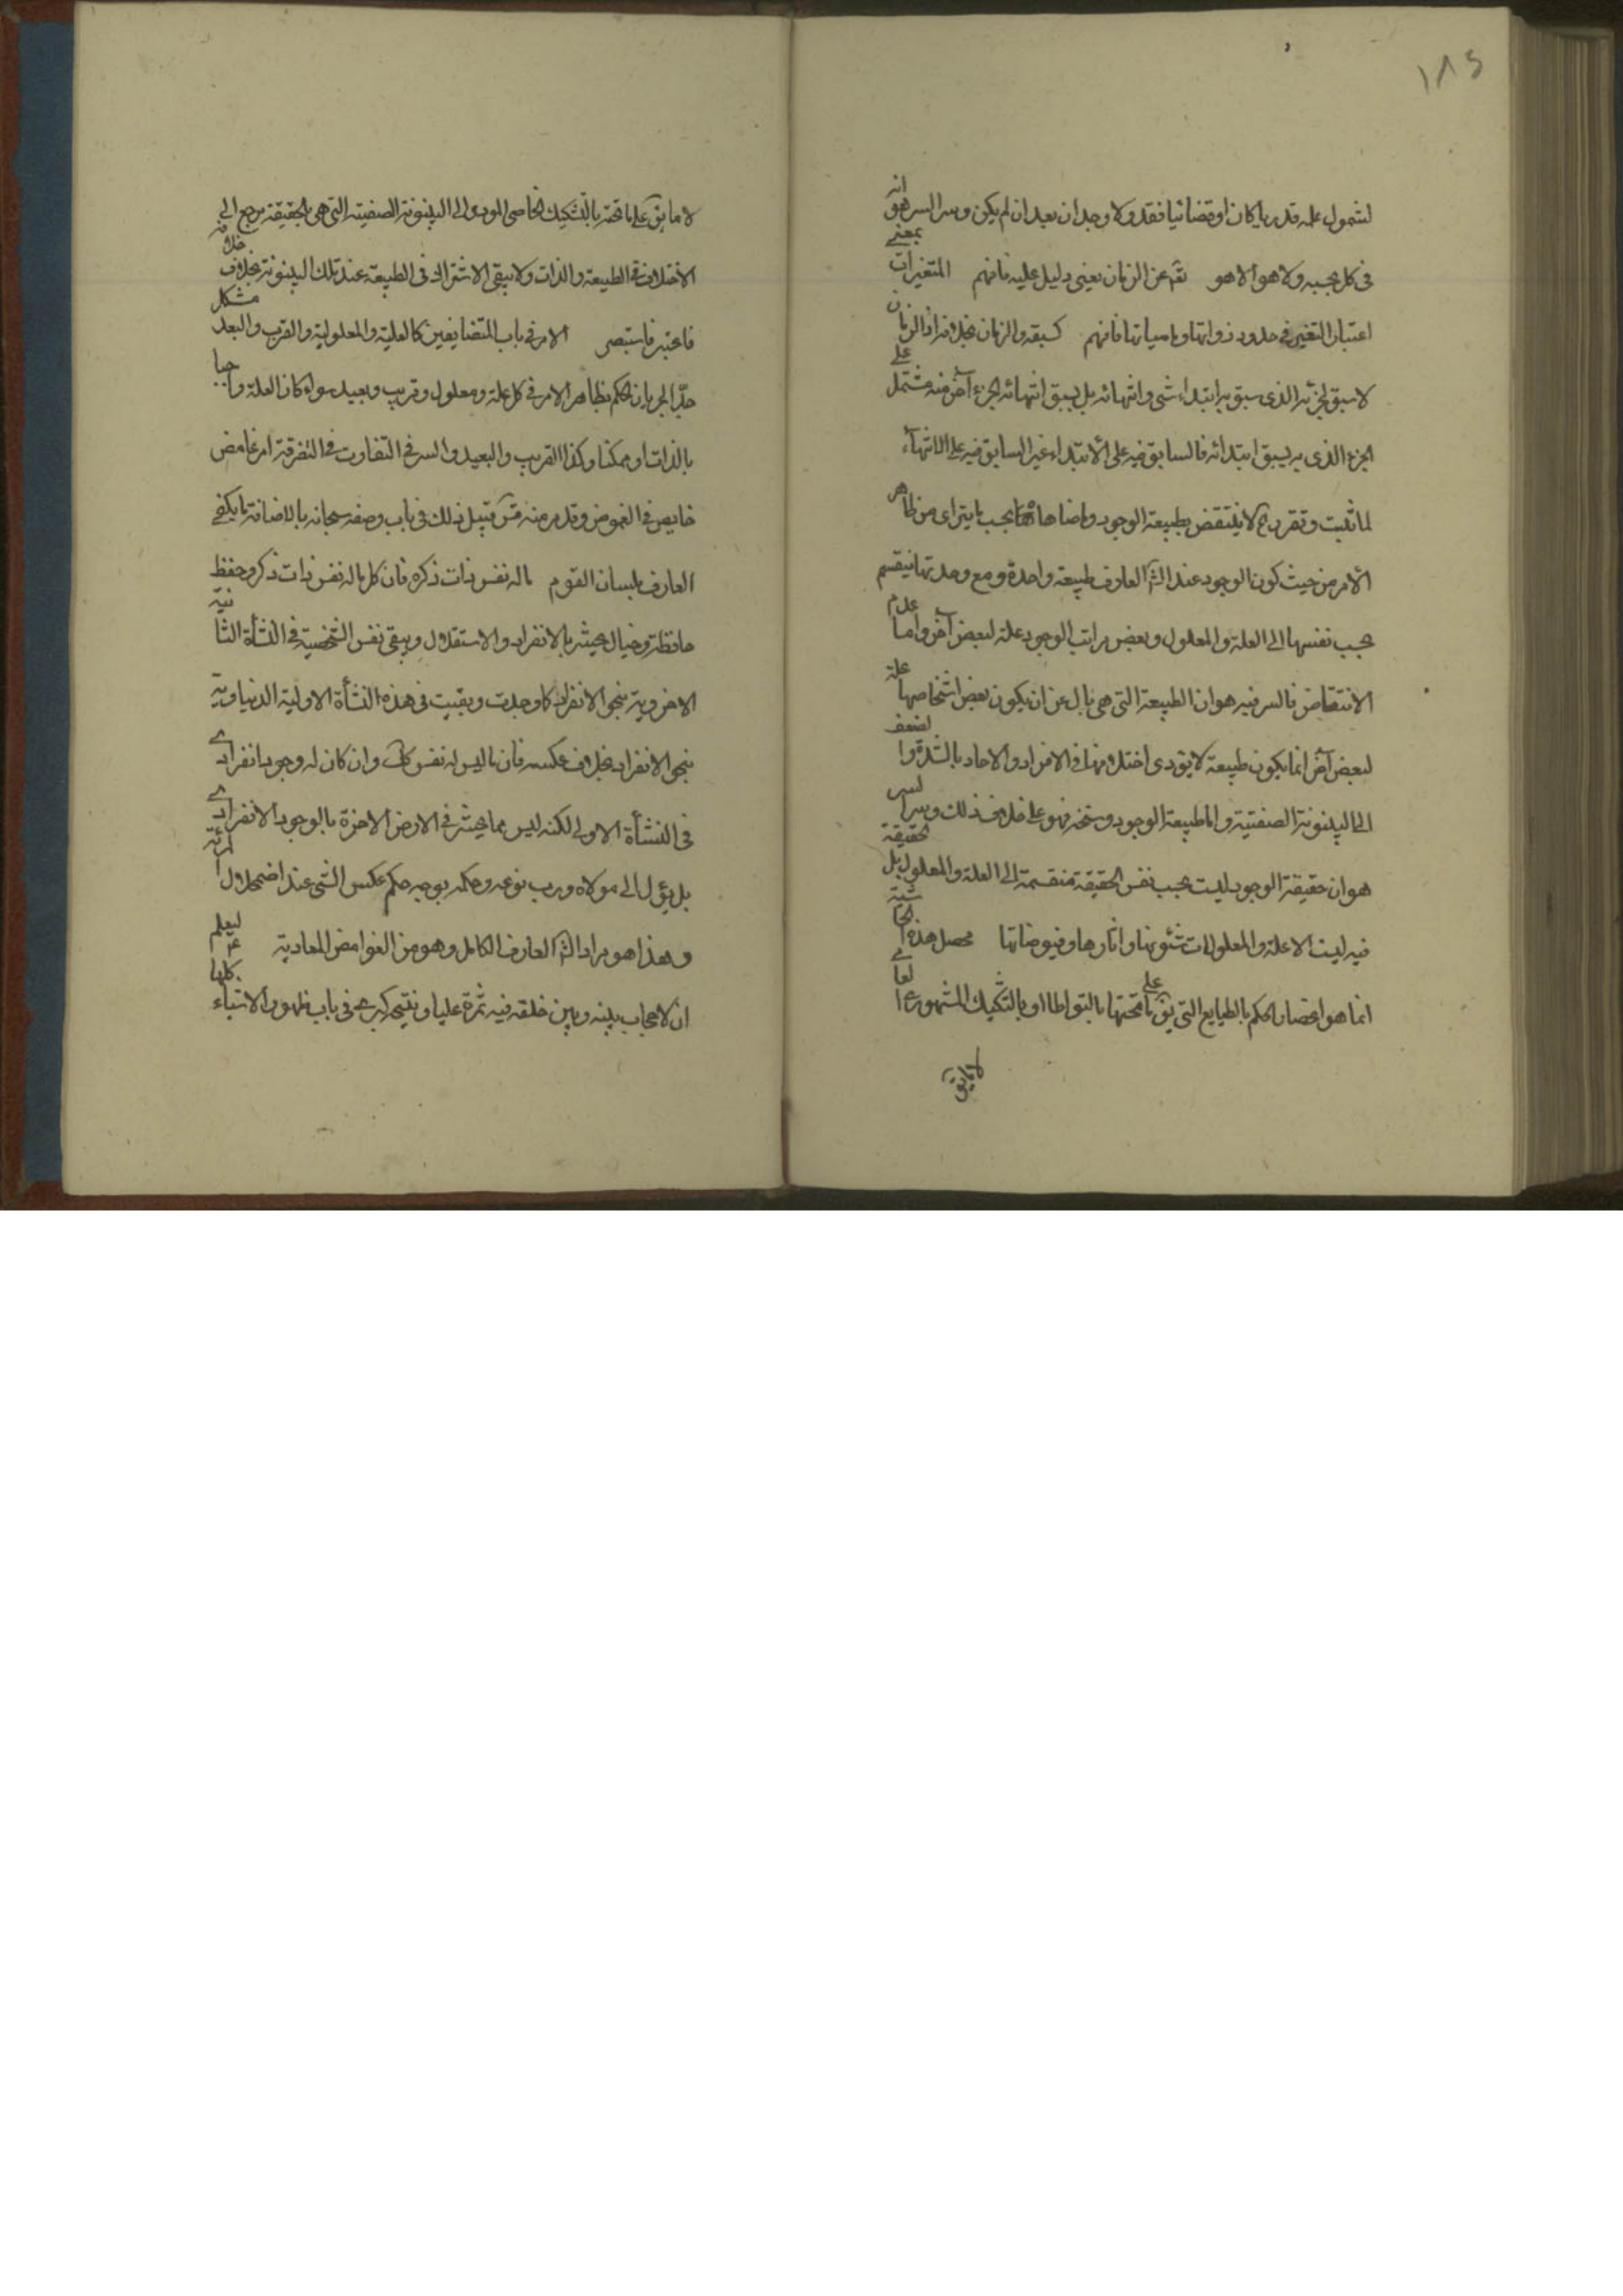 ١٨٥
لشمول علمه قدريا كان او قضائيا فقد ولا وجدان بعد ان لم يكن وسر السر هو انه
في كل بحسبه ولا هو الا هو تقدم عن الزمان يعني دليل عليه فافهم المتغيرات بمعنى
اعتبار التغير في حدود ذواتها وماهياتها فافهم كسبقه والزمان بخلافه اذ الزمان
لا سبق لجزئه الذي سبق به ابتداء شيء وانتهائه بل يسبق انتهائه لجزء آخر منه مشتمل على
الجزء الذي به يسبق ابتدائه فالسابق فيه على الابتداء غير السابق فيه على الانتهاء
لما ثبت وتقرر لا ينتقض بطبيعة الوجود وما ضاهاها بحسب ما يتراى من ظاهر
الامر من حيث كون الوجود عند الشارح العارف طبيعة واحدة ومع وحدتها ينقسم
بحسب نفسها الى العلة والمعلول وبعض مراتب الوجود علة لبعض آخر واما عدم
الانتقاض فالسر فيه هو ان الطبيعة التي هي بمعزل عن ان يكون بعض اشخاصها علة
لبعض آخر انما يكون طبيعة لا يؤدى اختلافها في الافراد والاحاد بالشدة والضعف
الى البينونة الصفتية واما طبيعة الوجود وسنخه فهو على خلاف ذلك وسر السر
هو ان حقيقة الوجود ليست بحسب نفس الحقيقة منقسمة الى العلة والمعلول بل الحقيقة
فيه ليست الا علة والمعلولات شئونها واثارها وفيوضاتها محصل هذه الحاشية
انما هو اختصاص الحكم بالطبايع التي يق على ما تحتها بالتواطا او بالتشكيك المشهوري العامي
لا ما يق
لا ما يق على ما تحته بالتشكيك الخاصي المودى الى البينونة الصفتية التي هي بالحقيقة يرجع الى
الاختلاف في الطبيعة والذات ولا يبقى الاشتراك في الطبيعة عند تلك البينونة بخلاف خلافه
فاعتبر فاستبصر الامر في باب المتضايفين كالعلية والمعلولية والقرب والبعد مشكل
جدا لجريان الحكم بظاهر الامر في كل علة ومعلول وقريب وبعيد سواء كان العلة واجبا
بالذات او ممكنا وكذا القريب والبعيد والسر في التفاوت في التفرقة امر غامض
خايص في الغموض وقد مر منه قبيل ذلك في باب وصفه سبحانه بالاضافة ما يكفي
العارف بلسان القوم ما له نفس ذات ذكره فان كل ما له نفس ذات ذكر وحفظ
حافظة وخيال يحشر بالانفراد والاستقلال ويبقى نفس الشخصية في النشأة الثانية
الاخروية بنحو الانفراد كما وجدت وبقيت في هذه النشأة الاولية الدنياوية
بنحو الانفراد بخلاف عكسه فان ما ليس له نفس كك وان كان له وجود انفرادي
في النشأة الاولى لكنه ليس مما يحشر في الارض الاخرة بالوجود الانفرادي
بل يؤل الى مولاه ورب نوعه وحكمه بوجه حكم عكس الشيء عند اضمحلال مرآته
وهذا هو مراد الشارح العارف الكامل وهو من الغوامض المعادية ليعلم
ان لا حجاب بينه وبين خلقه فيه ثمرة عليا ونتيجة كبرى في باب ظهور الاشياء كلها